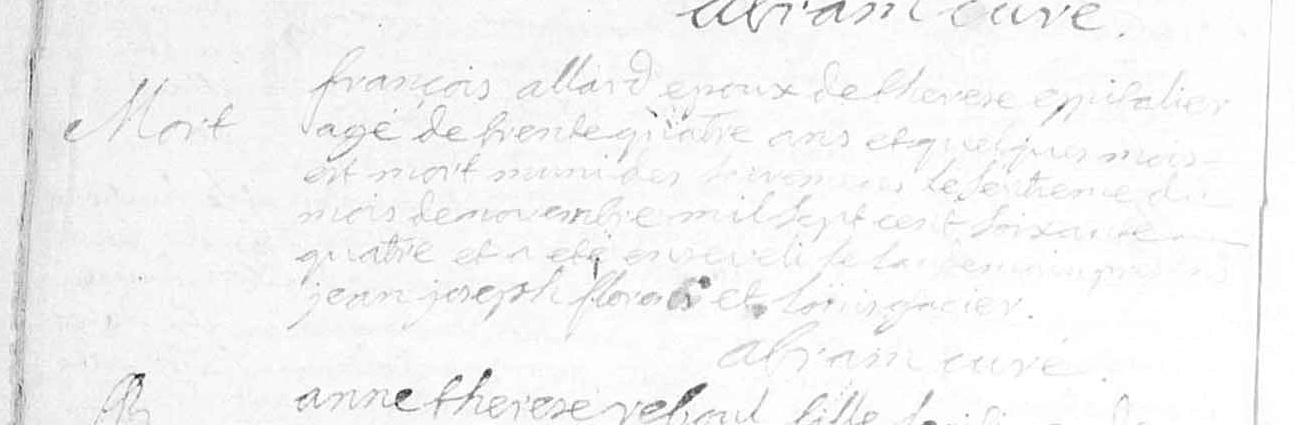 abram curé.
françois allard epoux de therese eppitalier
Mort
agé de trente quatre ans et quelques mois
est mort muni des sacremens le septieme du
mois de novembre mil sept cent soixante
quatre et a eté enseveli le lendemain presens
jean joseph et loüis gacier.
abram curé.
B
anne therese reboul fille